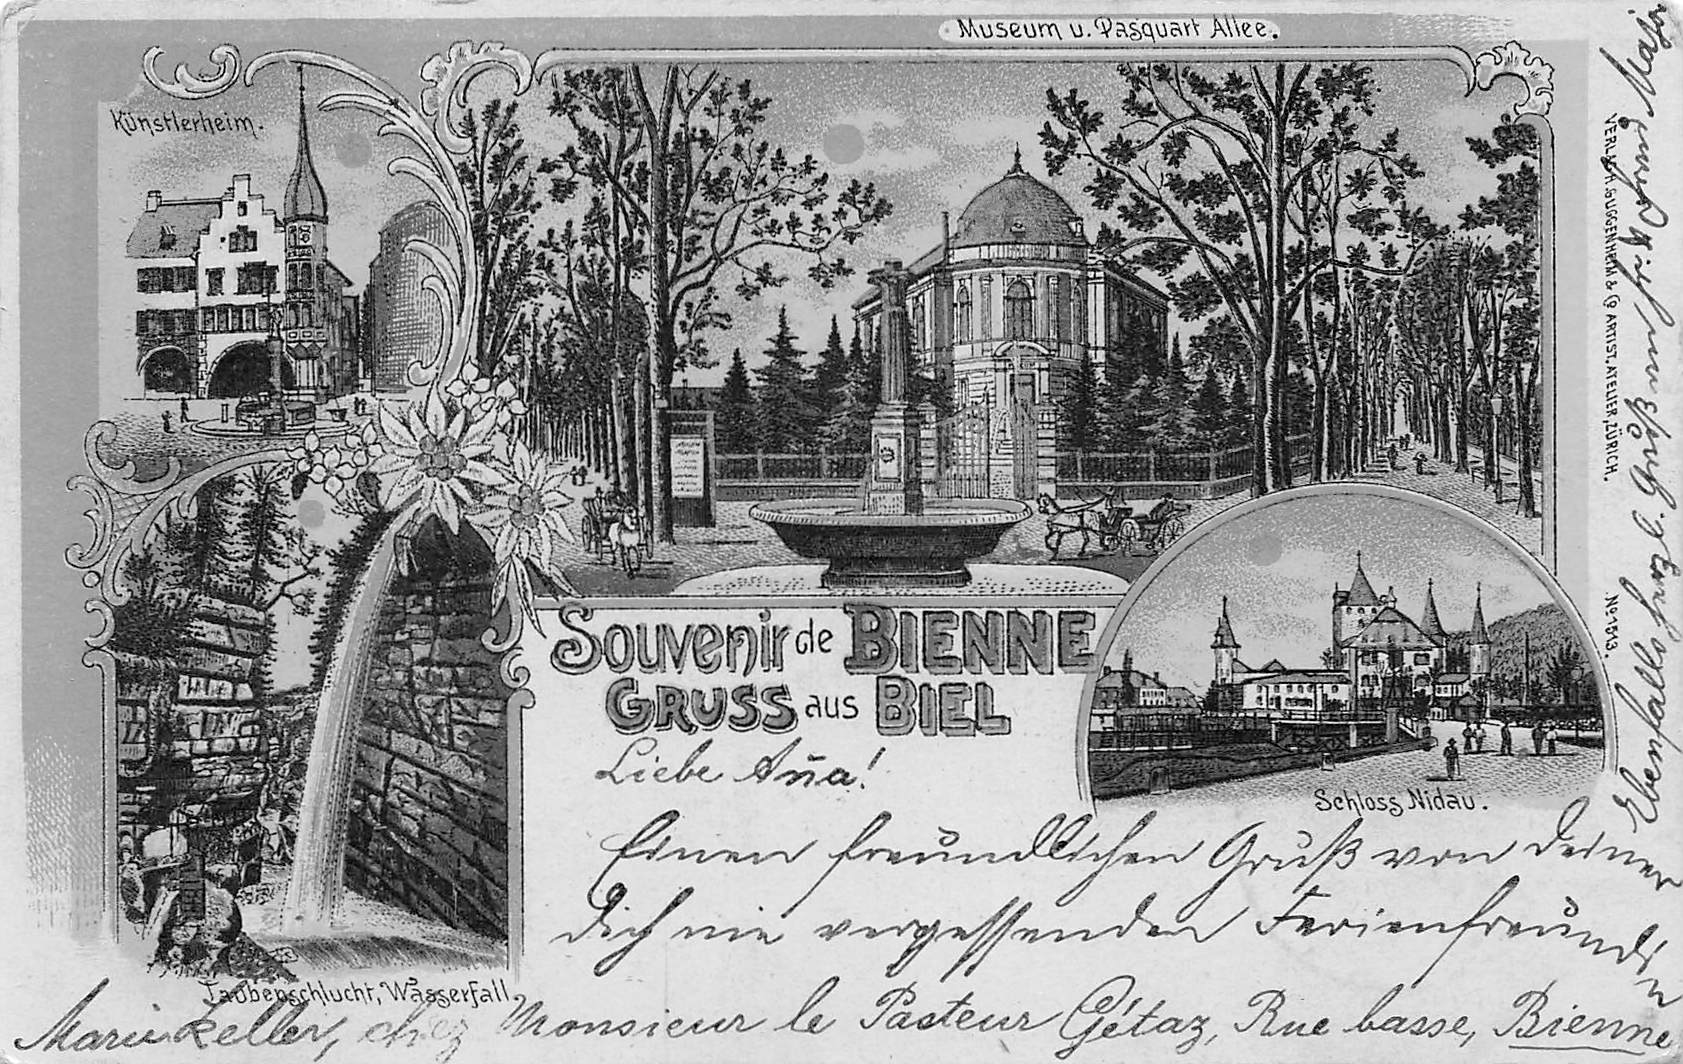 Museum u. Pasquart Allee.
Künstlerheim.
Souvenir de BIENNE
GRUSS aus BIEL
Liebe Anna!
Einen freundlichen Gruß von Deiner
Dich nie vergessenden Ferienfreundin
Schloss Nidau.
Taubenschlucht, Wasserfall.
Marie Keller, chez Monsieur le Pasteur Gétaz, Rue basse, Bienne
Ebenfalls herzl. Gruß
VERLAG v. GUGGENHEIM & Co ARTIST. ATELIER, ZÜRICH.
No 1513.